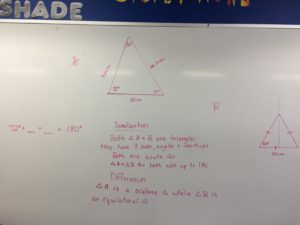 SHADE
A
72°
30cm
B
72° + _ + _ = 180°
60°
20cm
Similarities
Both △ A + B are triangles
they have 3 sides, angles + vertices
Both are acute △s
△A + △B
both add up to 180°
Differences
△ A is a scalene △ while △ B is
an equilateral △